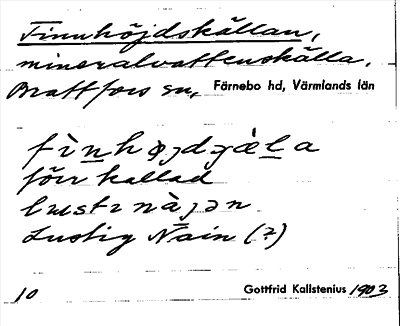 Finnhöjdskällan,
mineralvattenskälla.
Brattfors sn, Färnebo hd, Värmlands län
förr kallad
Lustig Näin (?)
10 Gottfrid Kallstenius 1903